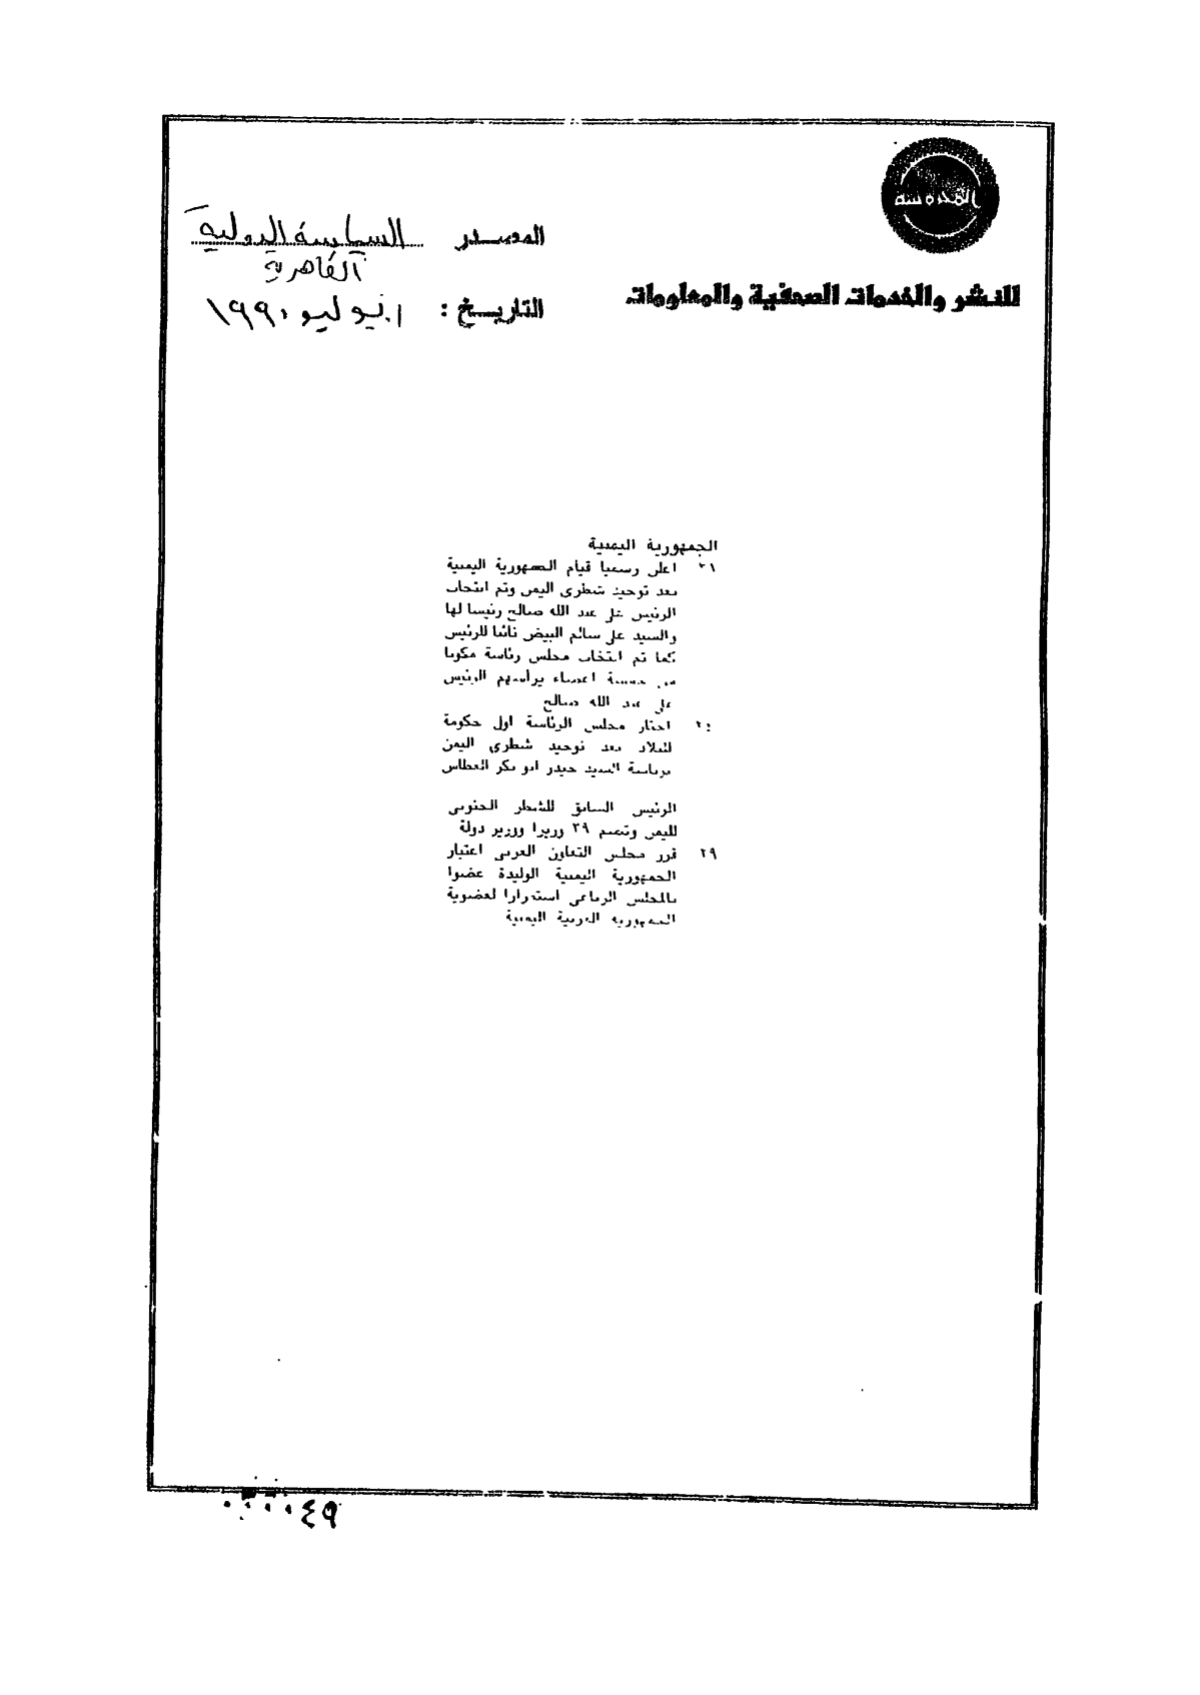 المحروسة
للنشر والخدمات الصحفية والمعلومات
المصدر السياسة الدولية
القاهرية
التاريخ : ١ يوليو ١٩٩٠
الجمهورية اليمنية
اعلن رسميا قيام الجمهورية اليمنية
بعد توحيد شطرى اليمن وتم انتخاب
الرئيس على عبد الله صالح رئيسا لها
والسيد على سالم البيض نائبا للرئيس
كما تم انتخاب مجلس رئاسة مكونا
من خمسة اعضاء يرأسهم الرئيس
على عبد الله صالح
اختار مجلس الرئاسة اول حكومة
للبلاد بعد توحيد شطرى اليمن
برئاسة السيد حيدر ابو بكر العطاس
الرئيس السابق للشطر الجنوبى
لليمن وتضم ٣٩ وزيرا ووزير دولة
٢٩ قرر مجلس التعاون العربى اعتبار
الجمهورية اليمنية الوليدة عضوا
بالمجلس الرباعى استمرارا لعضوية
الجمهورية العربية اليمنية